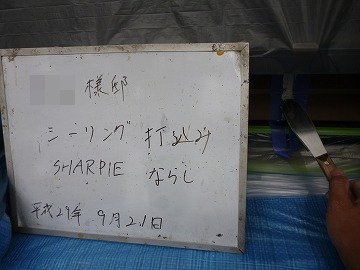 様邸
シーリング 打込み
SHARPIE ならし
平成29年 9月21日